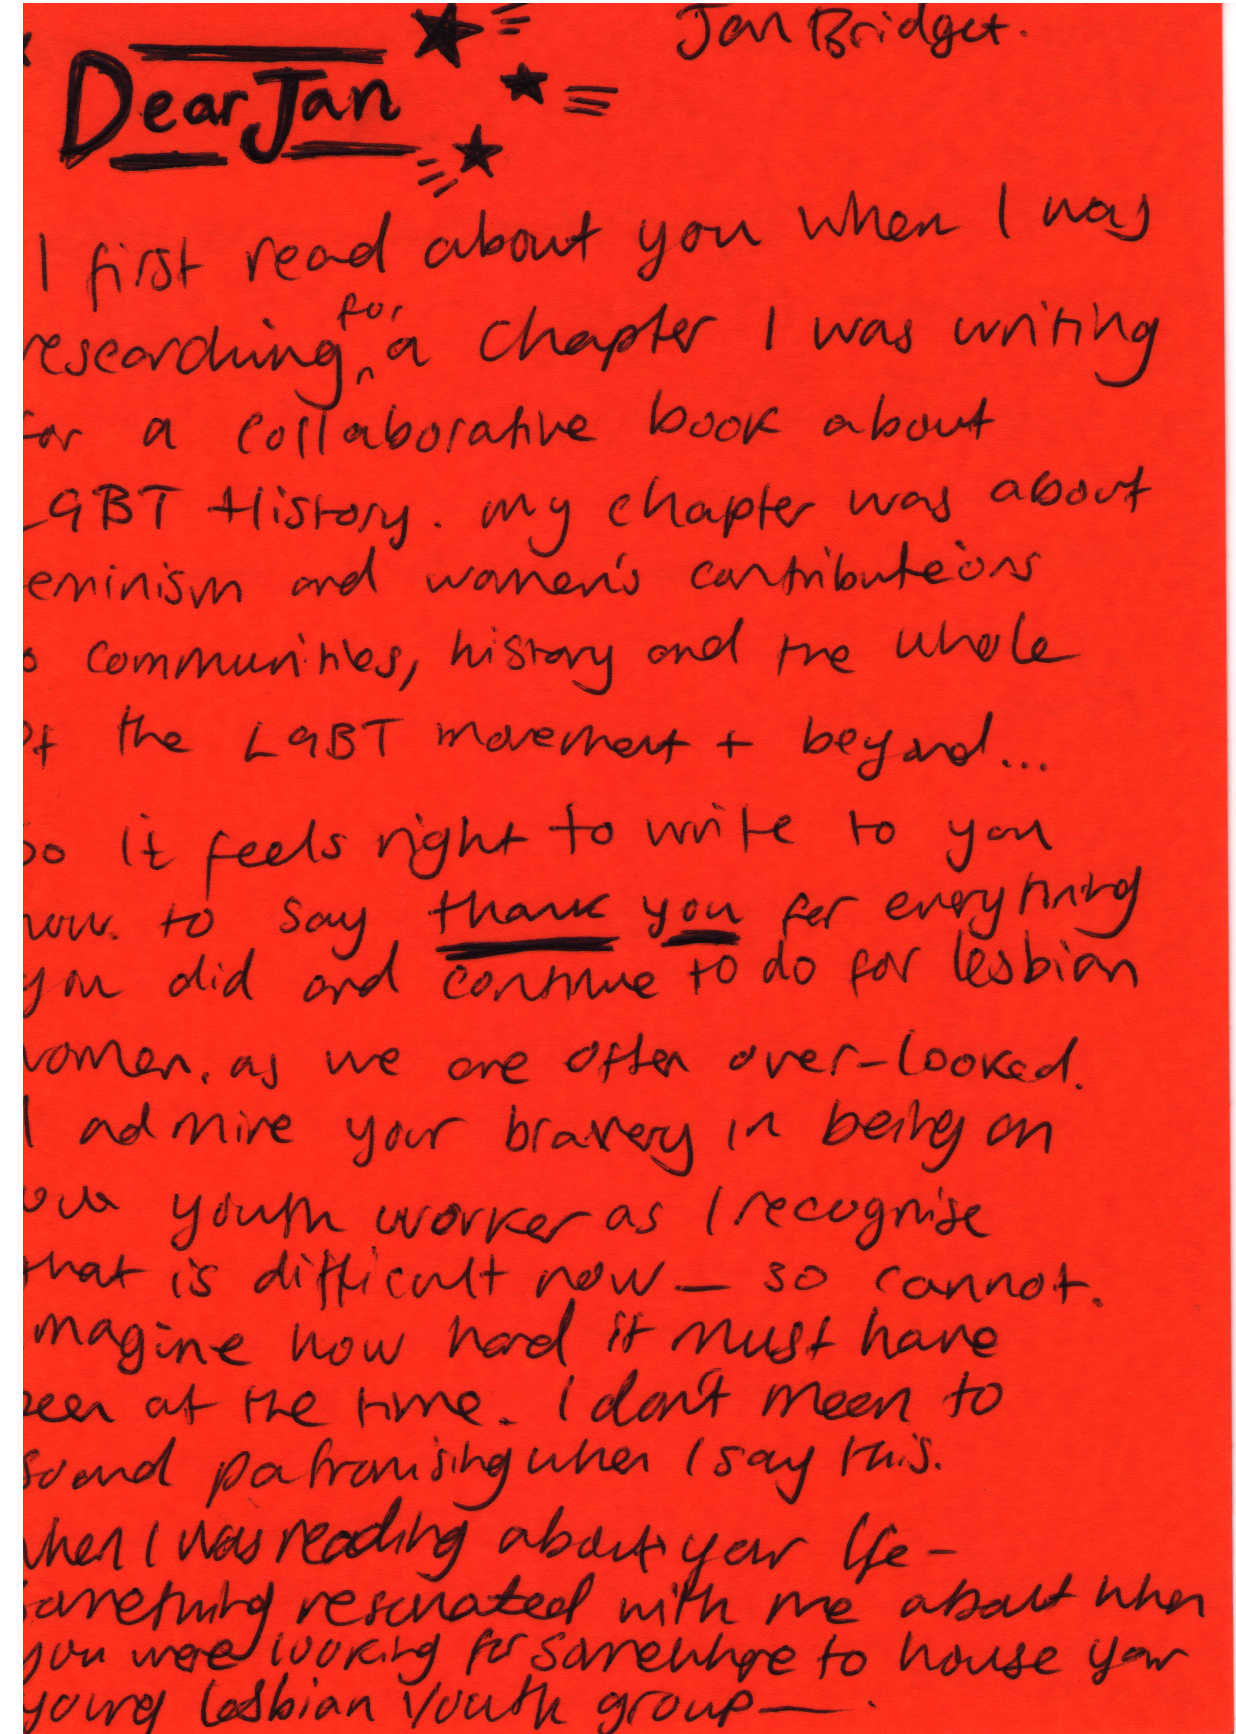 Jan Bridget.
Dear Jan
I first read about you when I was
researching for a chapter I was writing
for a collaborative book about
LGBT History. my chapter was about
eminism and women's contributions
o communities, history and the whole
of the LGBT movement + beyond...
So it feels right to write to you
now. to say thank you for everything
you did and continue to do for lesbian
women, as we are often over-looked.
I admire your bravery in being an
out youth worker as I recognise
that is difficult now — so cannot.
imagine how hard it must have
been at the time. I don't meen to
sound patronising when I say this.
when I was reading about your life -
something resonated with me about when
you were looking for somewhere to house your
young lesbian youth group —.